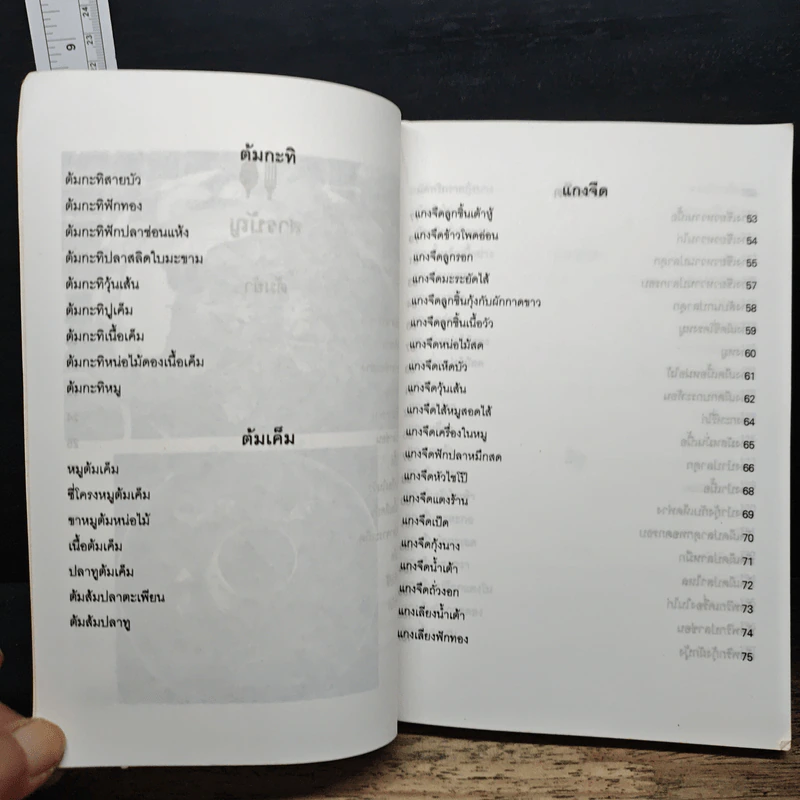 ต้มกะทิ
ต้มกะทิสายบัว
ต้มกะทิฟักทอง
ต้มกะทิฟักปลาช่อนแห้ง
ต้มกะทิปลาสลิดใบมะขาม
ต้มกะทิวุ้นเส้น
ต้มกะทิปูเค็ม
ต้มกะทิเนื้อเค็ม
ต้มกะทิหน่อไม้ดองเนื้อเค็ม
ต้มกะทิหมู
ต้มเค็ม
หมูต้มเค็ม
ซี่โครงหมูต้มเค็ม
ขาหมูต้มหน่อไม้
เนื้อต้มเค็ม
ปลาทูต้มเค็ม
ต้มส้มปลาตะเพียน
ต้มส้มปลาทู
แกงจืด
แกงจืดลูกชิ้นเต้าหู้ 53
แกงจืดข้าวโพดอ่อน 54
แกงจืดลูกรอก 55
แกงจืดมะระยัดไส้ 57
แกงจืดลูกชิ้นกุ้งกับผักกาดขาว 58
แกงจืดลูกชิ้นเนื้อวัว 59
แกงจืดหน่อไม้สด 60
แกงจืดเห็ดบัว 61
แกงจืดวุ้นเส้น 62
แกงจืดไส้หมูสอดไส้ 64
แกงจืดเครื่องในหมู 65
แกงจืดฟักปลาหมึกสด 66
แกงจืดหัวไชโป๊ 68
แกงจืดแตงร้าน 69
แกงจืดเป็ด 70
แกงจืดกุ้งนาง 71
แกงจืดน้ำเต้า 72
แกงจืดถั่วงอก 73
แกงเลียงน้ำเต้า 74
แกงเลียงฟักทอง 75